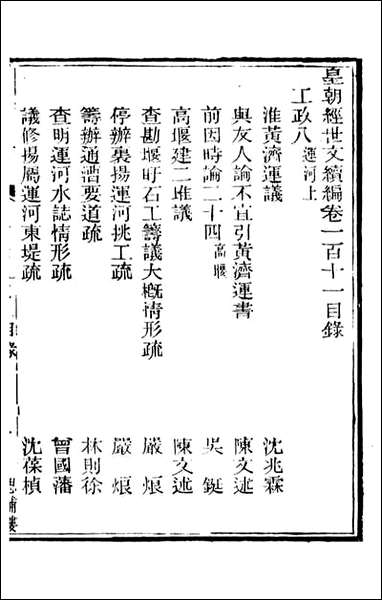 皇朝經世文續編卷一百十一目錄
工政八運河上
淮黃濟運議 沈兆霖
與友人論不宜引黃濟運書 陳文述
前因時論二十四高堰 吳鋌
高堰建二堆議 陳文述
查勘堰盱石工籌議大概情形疏 嚴烺
停辦裏揚運河挑工疏 嚴烺
籌辦通漕要道疏 林則徐
查明運河水誌情形疏 曾國藩
議修揚屬運河東堤疏 沈葆楨
目錄
思補樓